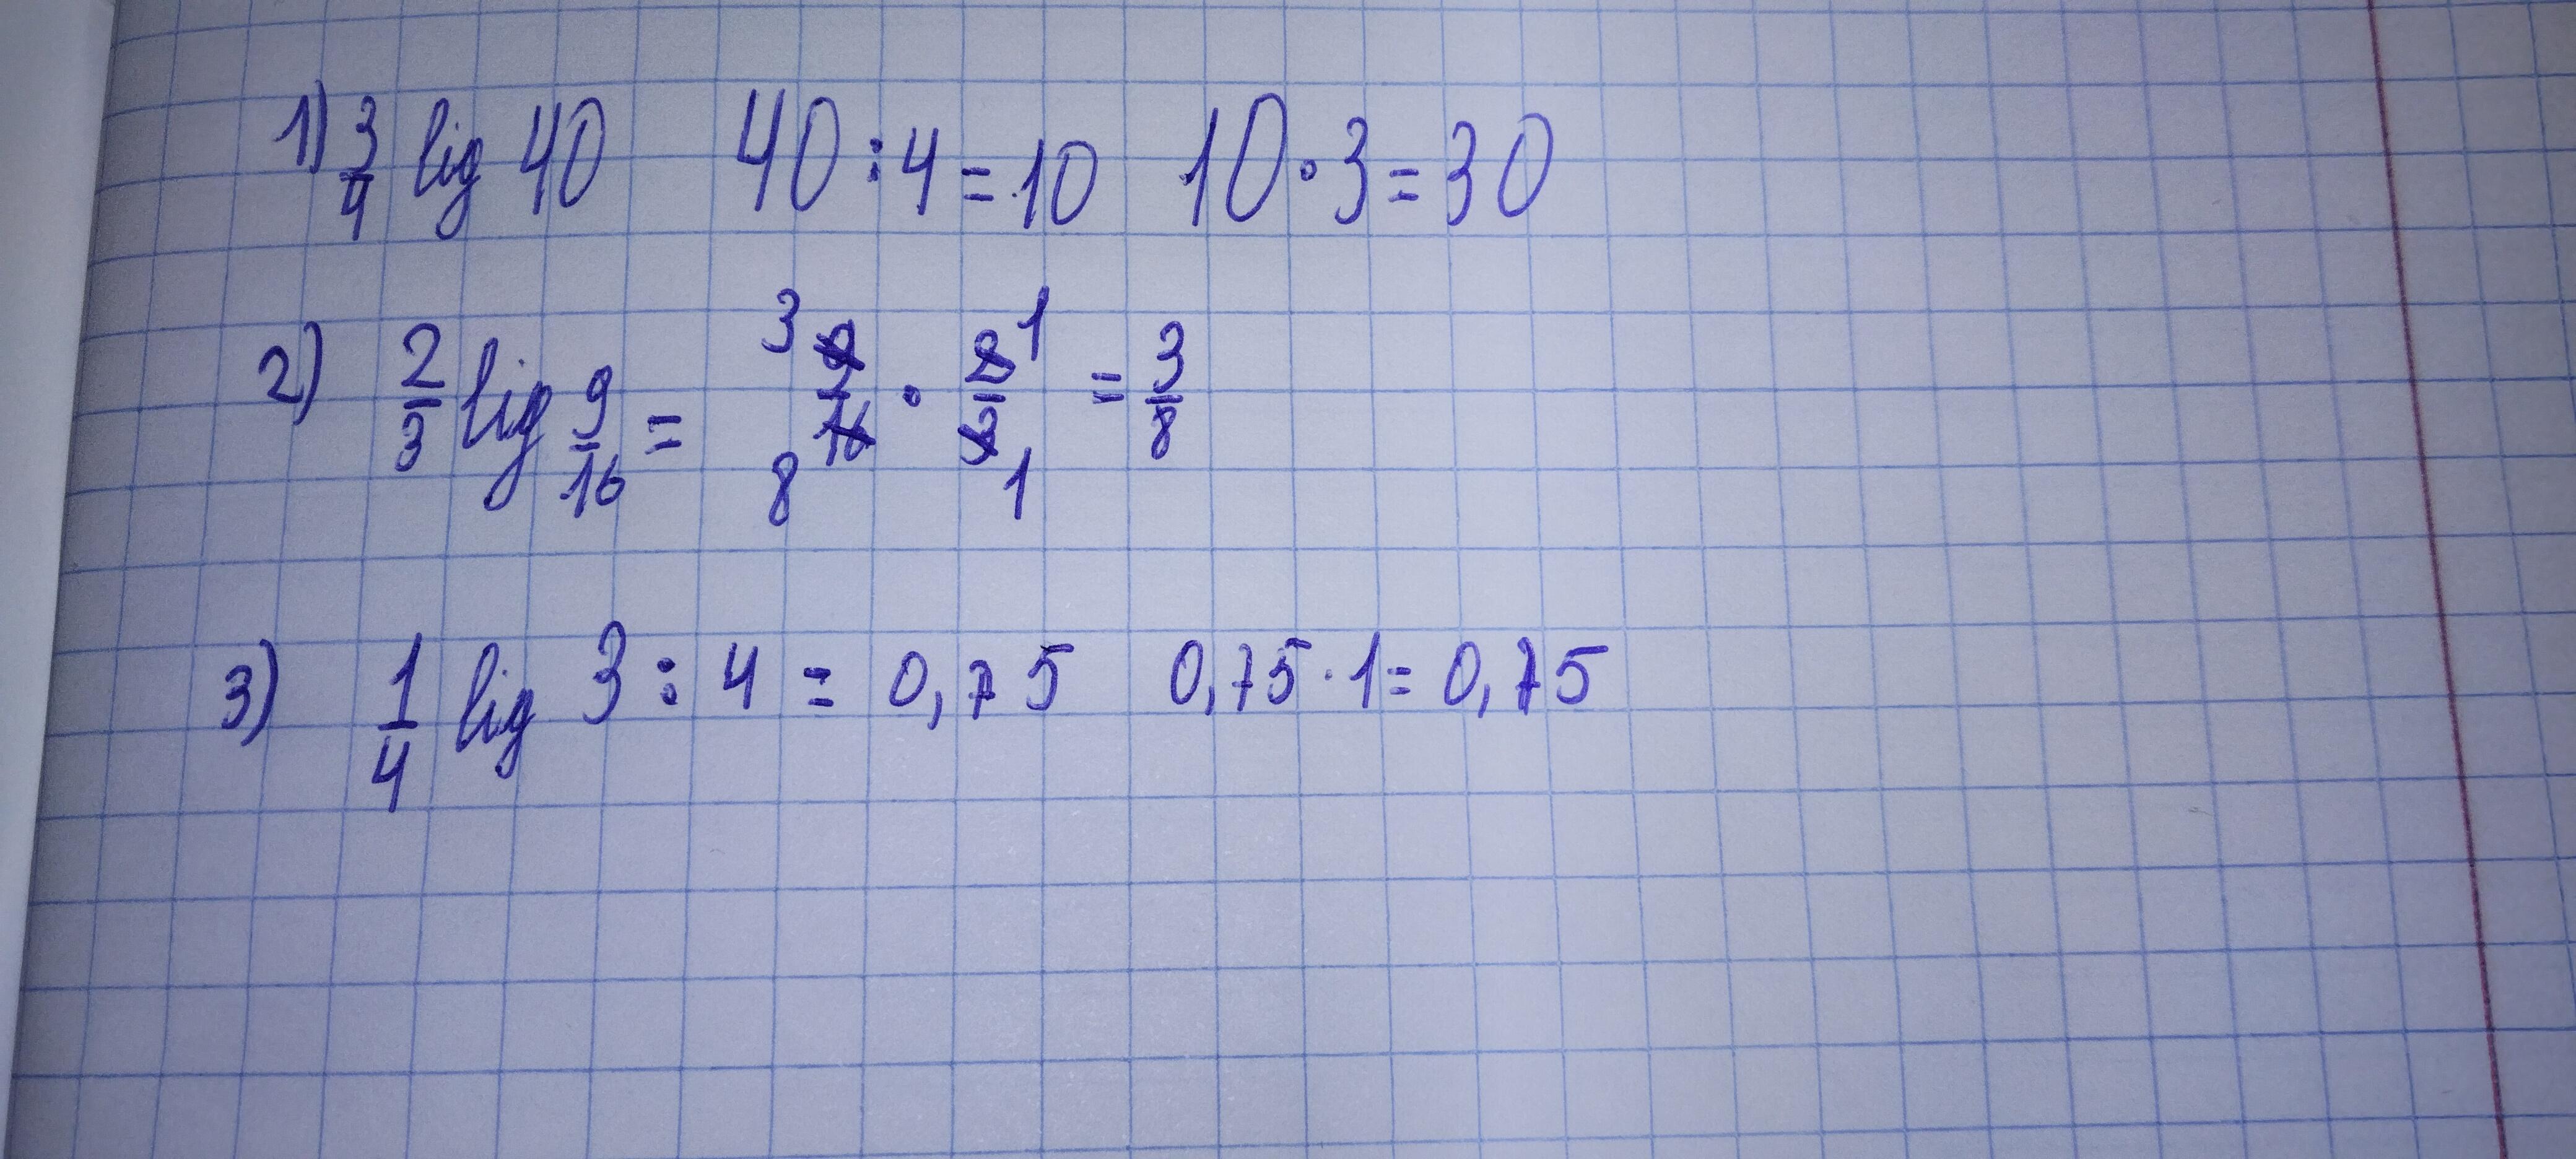 1) 3/4 lig 40 40 : 4 = 10 10 · 3 = 30
2) 2/3 lig 9/16 = 3 9/16 8 · 2/3 1 1 = 3/8
3) 1/4 lig 3 : 4 = 0,75 0,75 · 1 = 0,75